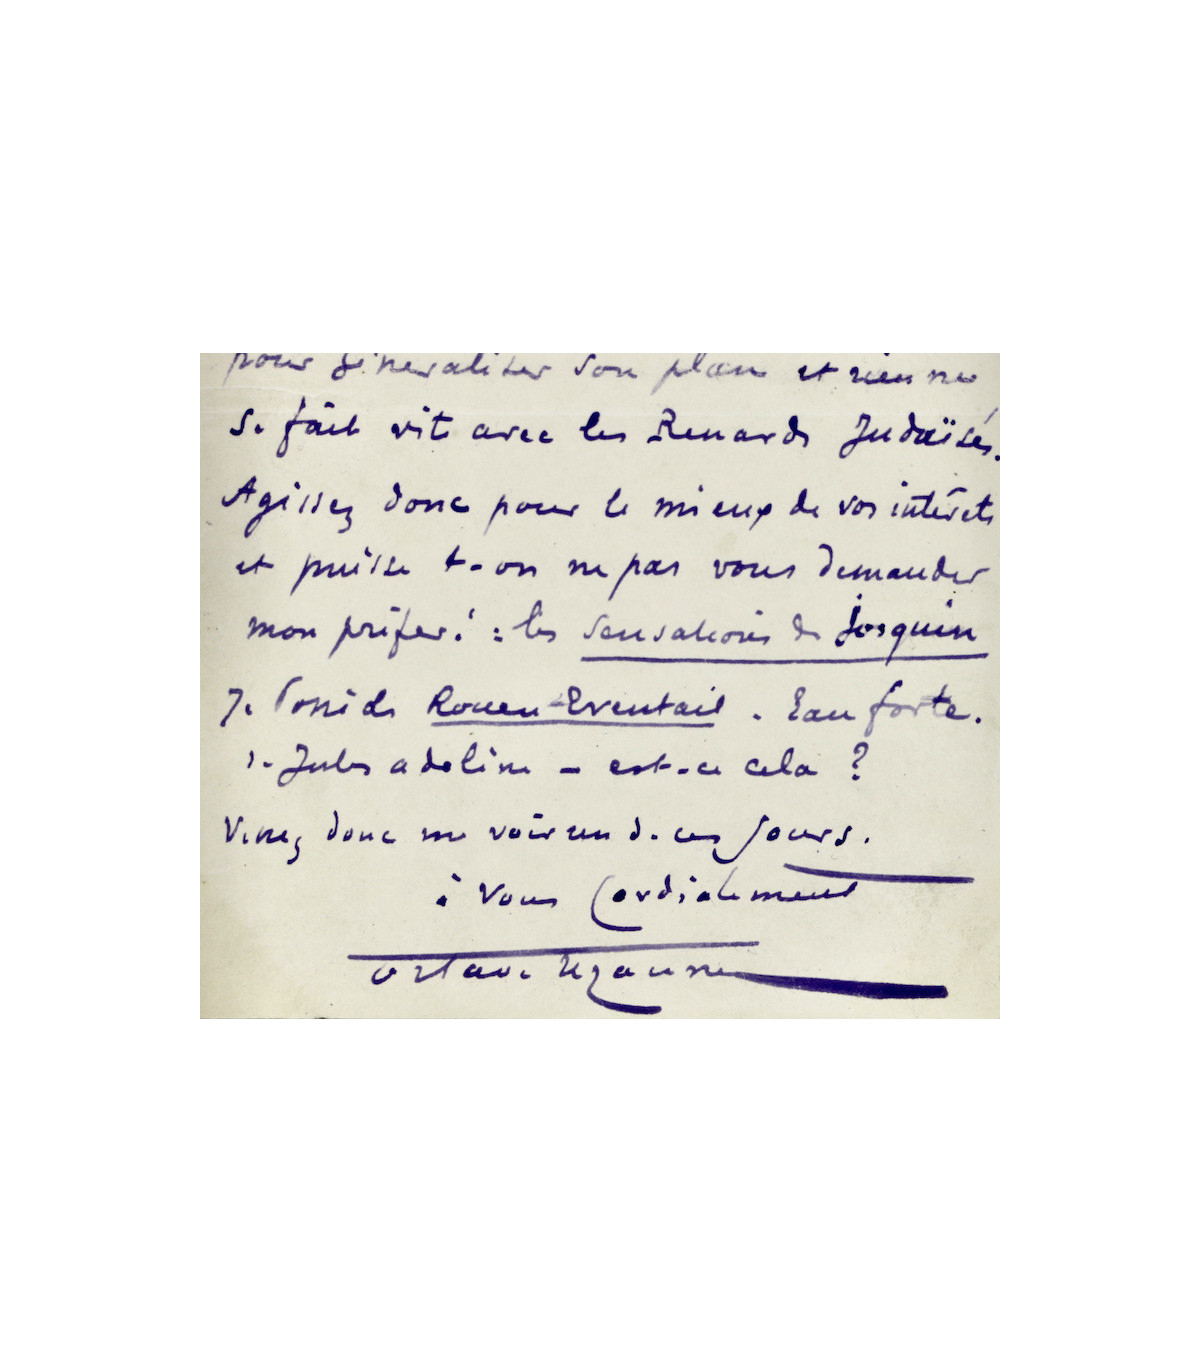 pour généraliser son plan et rien ne
se fait vite avec les Renards Judaïsés.
Agissez donc pour le mieux de vos intérêts
et puisse t-on ne pas vous demander
mon préféré : les Sensations de Josquin
Je possède Rouen-Eventail . Eau forte.
de Jules adeline – est-ce cela ?
Venez donc me voir un de ces jours.
à vous Cordialement
Octave Uzanne